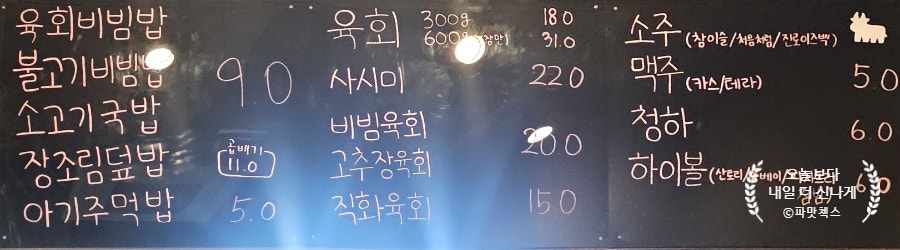 육회비빔밥
불고기비빔밥
9.0
소고기국밥
장조림덮밥
곱배기
11.0
아기주먹밥 5.0
육회 300g 18.0
600g 31.0
사시미 22.0
비빔육회
20.0
고추장육회
직화육회 15.0
소주(참이슬/처음처럼/진로이즈백)
맥주(카스/테라) 5.0
청하 6.0
하이볼(산토리/
오늘보다
내일 더 신나게
©파맛첵스